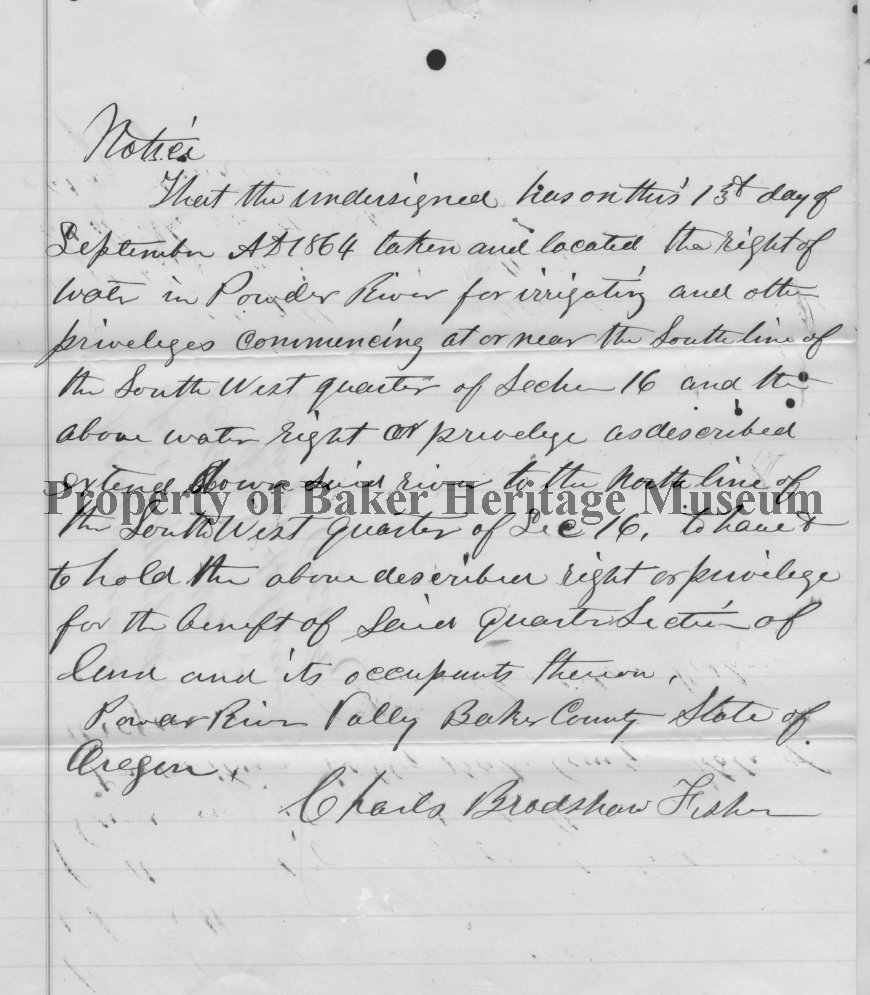 Notice
That the undersigned has on this 13t day of
September AD 1864 taken and located the right of
Water in Powder River for irrigating and other
priveleges commencing at or near the South line of
the South West quarter of Section 16 and the
above water right or privelege as described
extend down said river to the North line of
Property of Baker Heritage Museum
the South West quarter of Sec 16, to have &
to hold the above described right or privilege
for the benefit of said quarter Section of
land and its occupants thereon,
Powder River Vally Baker County State of
Oregon,
Charles Bradshaw Fisher